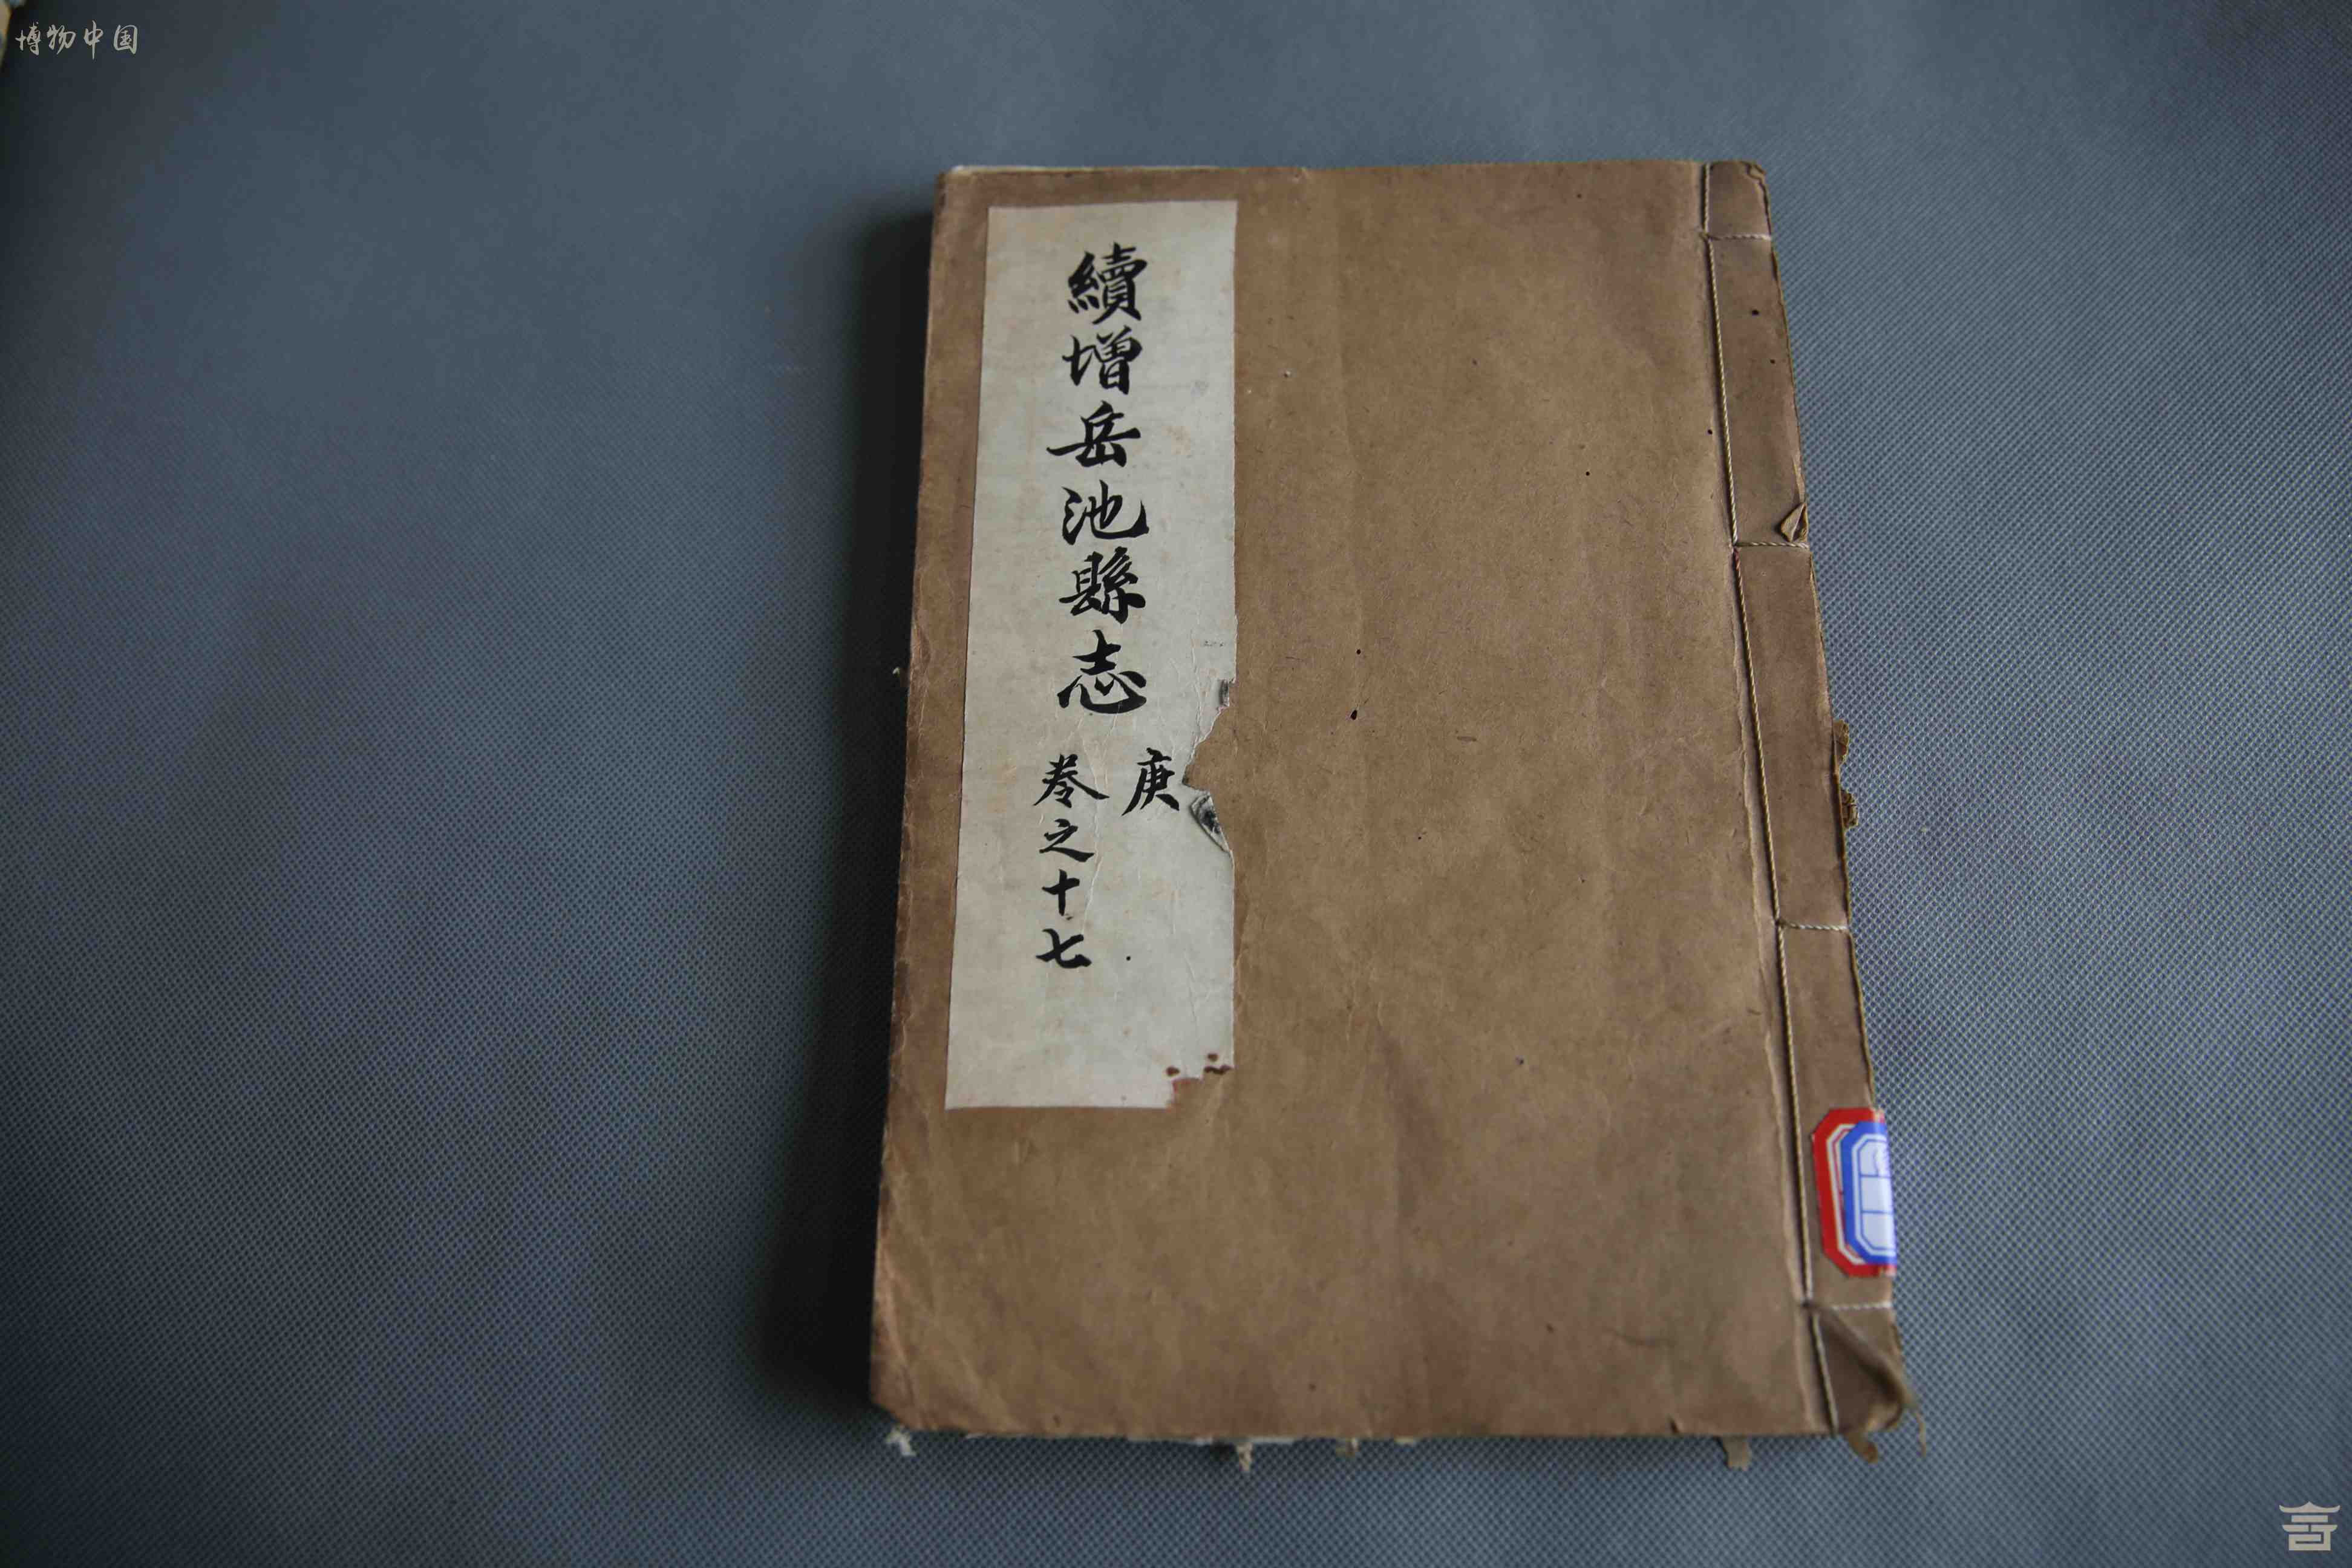 博物中国
續增岳池縣志
庚
卷之十七